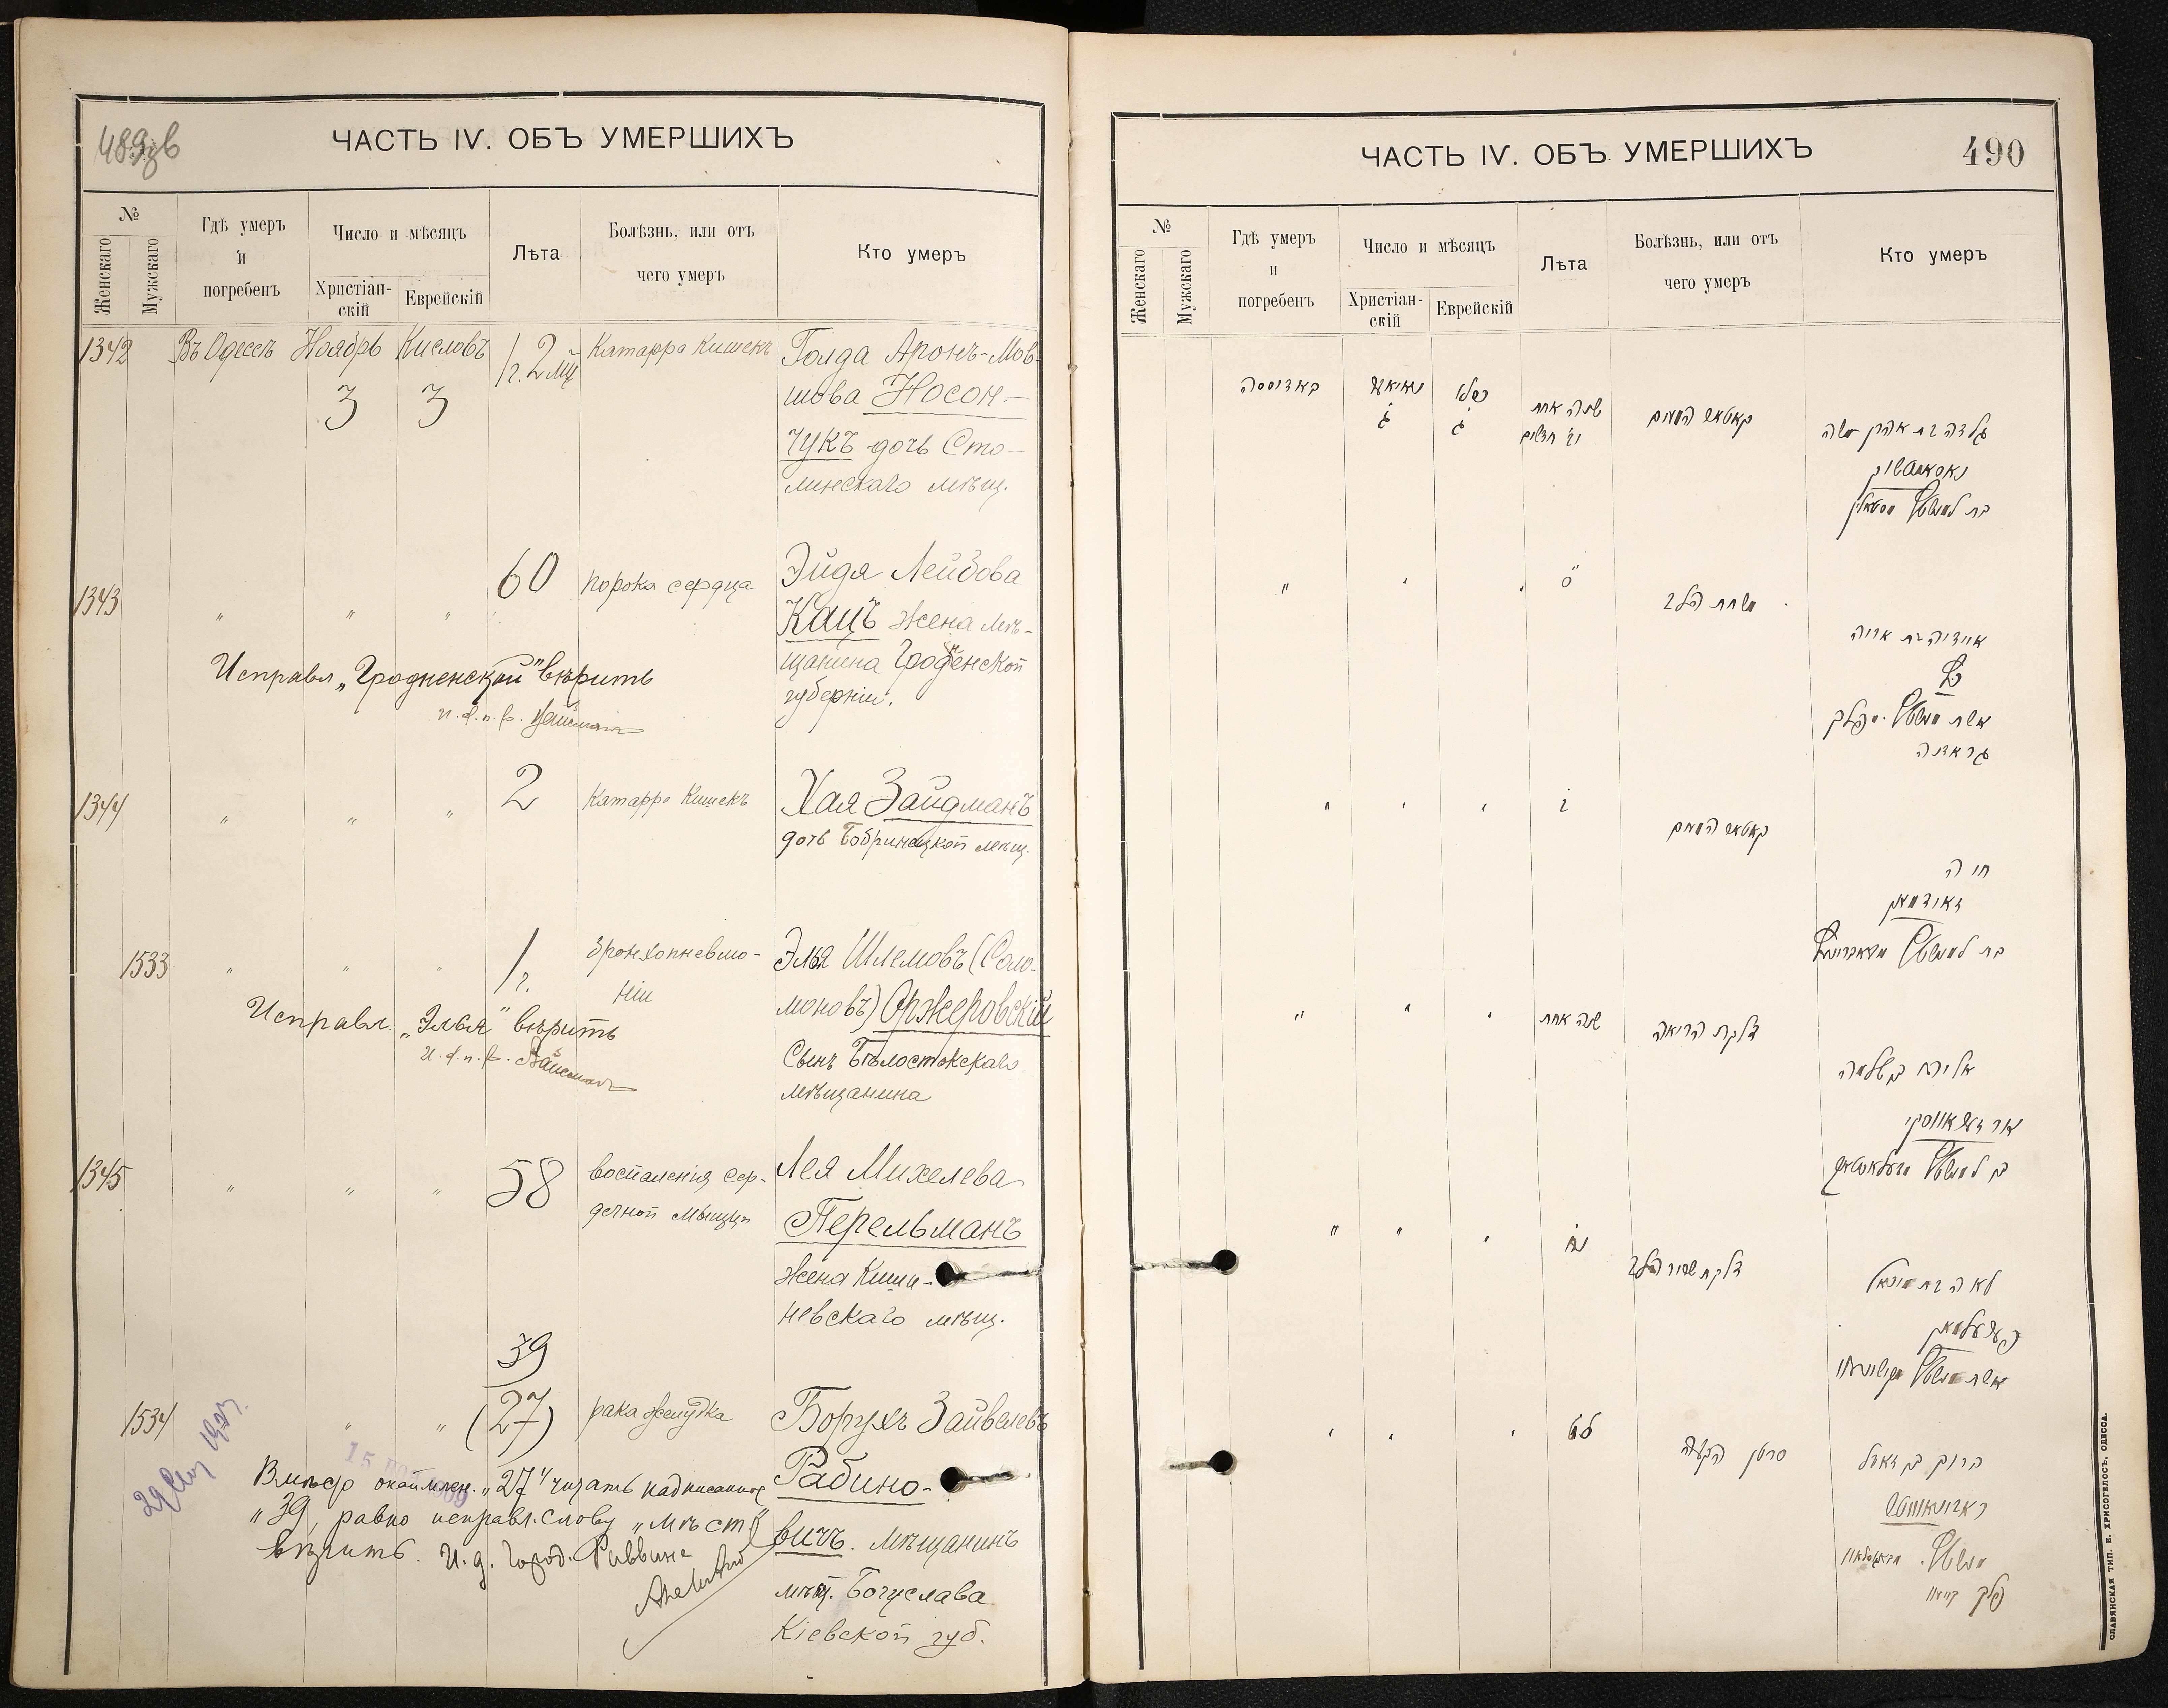 489 об
ЧАСТЬ IV. ОБЪ УМЕРШИХЪ
№
Женскаго
Мужскаго
Гдѣ умеръ
и
погребенъ
Число и мѣсяцъ
Христіан-
скій
Еврейскій
Лѣта
Болѣзнь, или отъ
чего умеръ
Кто умеръ
1342
Въ Одессѣ
Ноябрь
3
Кислевъ
3
1 г. 2 мц
Катарра Кишекъ
Голда Аронъ-Мов-
шова Носон-
чукъ дочь Сто-
линскаго мѣщ.
1343
" " "
60
порока сердца
Эйдя Лейбова
Кацъ жена мѣ-
щанина Гродненской
губерніи.
Исправл „Гродненской" вѣрить
и. д. п. р.
1344
" " "
2
Катарра Кишекъ
Хая Зайдманъ
дочь Бобринецкой мѣщ.
1533
" " "
1 г.
бронхопневмо-
ніи
Элья Шлемовъ (Соло-
моновъ) Оржеровскій
Сынъ Бѣлостокскаго
мѣщанина
Исправл. „Элья" вѣрить
и. д. п. р.
1345
" " "
58
воспаленія сер-
дечной мышцы
Лея Михелева
Перельманъ
жена Киши-
невскаго мѣщ.
1534
" "
39
(27)
рака желудка
Борухъ Зайвелевъ
Рабино-
вичъ. Мѣщанинъ
мѣст. Богуслава
Кіевской губ.
15 1909
Вмѣсто „27" читать надписанное
„39", равно исправл. слову „мѣст"
вѣрить. И. д. Город. Раввина
ЧАСТЬ IV. ОБЪ УМЕРШИХЪ
490
№
Женскаго
Мужскаго
Гдѣ умеръ
и
погребенъ
Число и мѣсяцъ
Христіан-
скій
Еврейскій
Лѣта
Болѣзнь, или отъ
чего умеръ
Кто умеръ
באדיססה
כסלו
ג
ג
שנה אחת
וב' חדשים
קאטאר המעים
גלדה בת אהרן משה
נאסאנטשוק
" ' '
ס
אידיה בת אריה
כ"ץ
גראדנה
" ' '
ב
קאטאר המעים
חיה
זאידמאן
" " '
שנה אחת
דלקת הריאה
אליהו בן שלמה
" " '
נח
דלקת שריר הלב
לאה בת מיכאל
פערעלמאן
' ' '
לט
סרטן הקבה
ברוך בן זאוול
ראבינאוויטש
פלך קיאוו
СЛАВЯНСКАЯ ТИП. Е. ХРИСОГЕЛОСЪ, ОДЕССА.